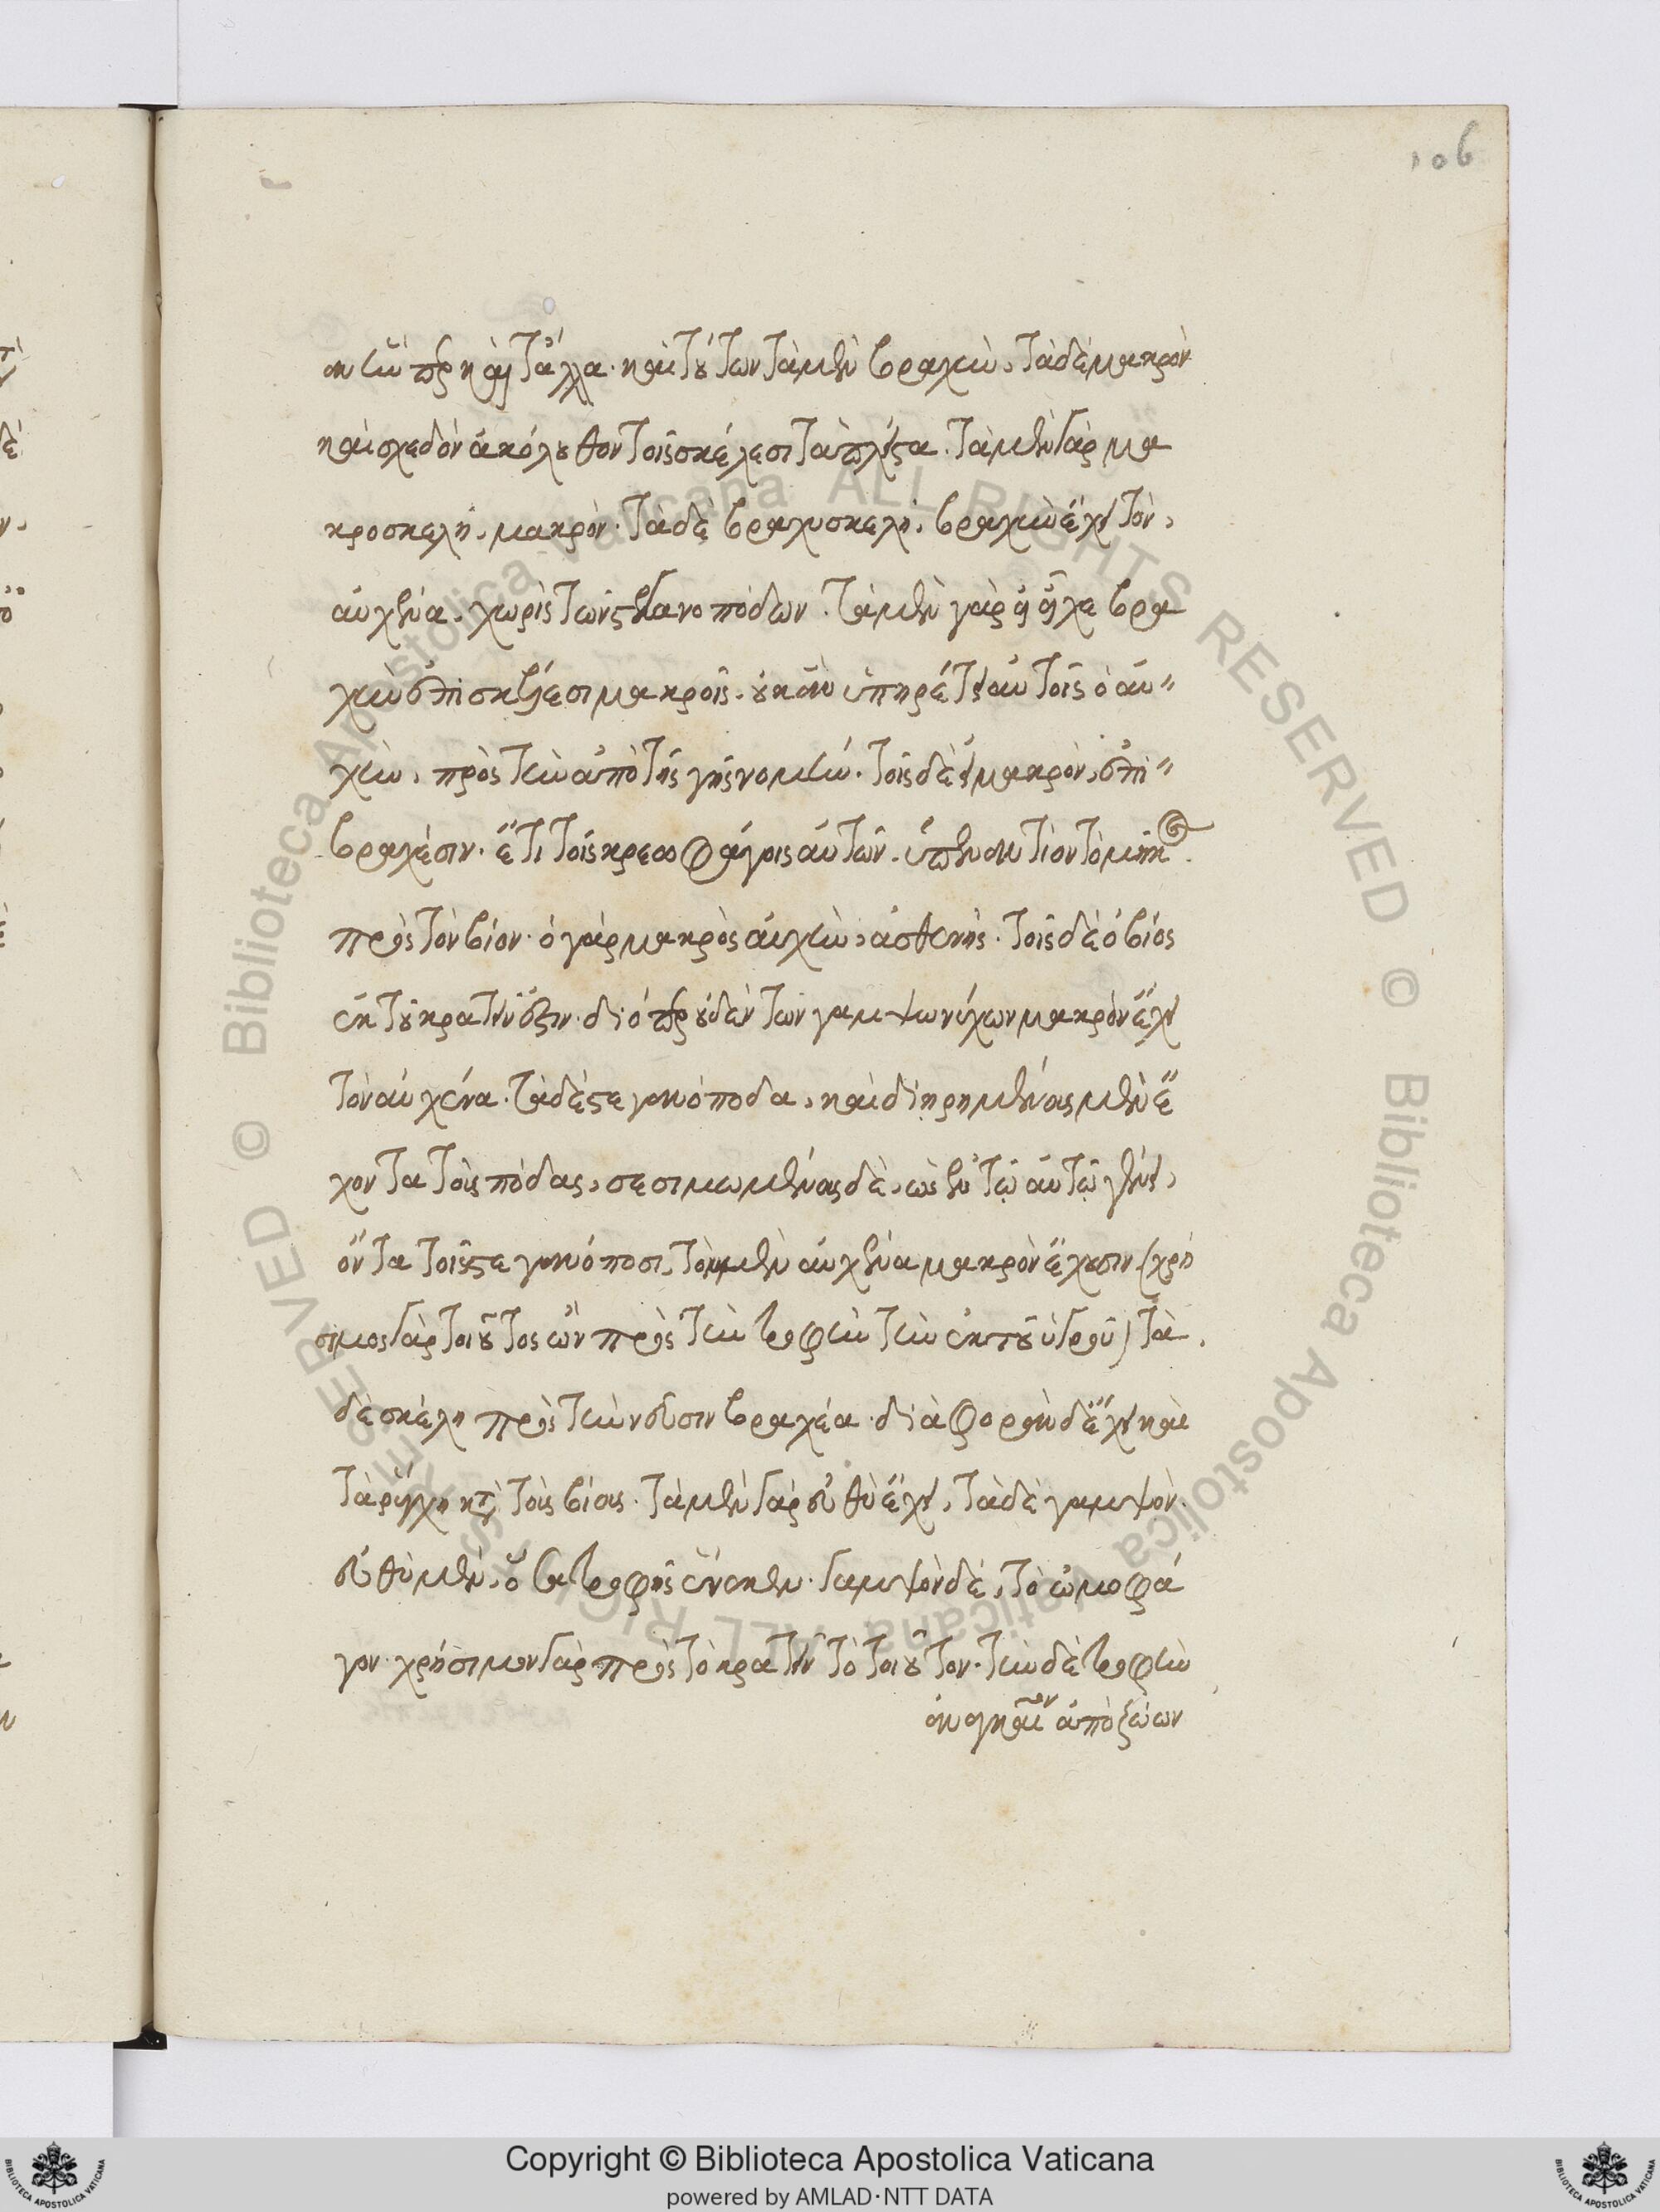 106
αἰτίαν ἥνπερ καὶ τἄλλα· καὶ τούτων τὰ μὲν βραχὺν, τὰ δὲ μακρὸν
καὶ σχεδὸν ἀκόλουθον τοῖς σκέλεσι τὰ πλεῖστα. τὰ μὲν γὰρ μα
κροσκελῆ, μακρὸν· τὰ δὲ βραχυσκελῆ, βραχὺν ἔχει τὸν,
αὐχένα, χωρὶς τῶν στεγανοπόδων. τὰ μὲν γὰρ εἰ εἶχε βρα
χὺν ἐπὶ σκέλεσι μακροῖς, οὐκ ἂν ὑπηρέτει αὐτοῖς ὁ αὐ
χὴν, πρὸς τὴν ἀπὸ τῆς γῆς νομήν. τοῖς δὲ εἰ μακρὸν, ἐπὶ
βραχέσιν. ἔτι τοῖς κρεοφάγοις αὐτῶν, ὑπεναντίον τὸ μῆκος
πρὸς τὸν βίον· ὁ γὰρ μακρὸς αὐχὴν, ἀσθενής. τοῖς δὲ ὁ βίος
ἐκ τοῦ κρατεῖν ἐστιν· διόπερ οὐδὲν τῶν γαμψωνύχων μακρὸν ἔχει
τὸν αὐχένα. τὰ δὲ στεγανόποδα, καὶ διῃρημένους μὲν ἔ
χοντα τοὺς πόδας, σεσιμωμένους δὲ, ὡς ἐν τῷ αὐτῷ γένει,
ὄντα τοῖς στεγανόποσι, τὸν μὲν αὐχένα μακρὸν ἔχουσιν (χρή
σιμος γὰρ τοιοῦτος ὢν πρὸς τὴν τροφὴν τὴν ἐκ τοῦ ὑγροῦ) τὰ
δὲ σκέλη πρὸς τὴν νεῦσιν βραχέα. διαφορὰν δ' ἔχει καὶ
τὰ ῥύγχη κατὰ τοὺς βίους. τὰ μὲν γὰρ εὐθὺ ἔχει, τὰ δὲ γαμψόν.
εὐθὺ μὲν, ὅσα τροφῆς ἕνεκεν· γαμψὸν δὲ, τὸ ὠμοφά
γον· χρήσιμον γὰρ πρὸς τὸ κρατεῖν τὸ τοιοῦτον. τὴν δὲ τροφὴν
ἀναγκαῖον ἀπὸ ζώων
Copyright © Biblioteca Apostolica Vaticana
powered by AMLAD·NTT DATA